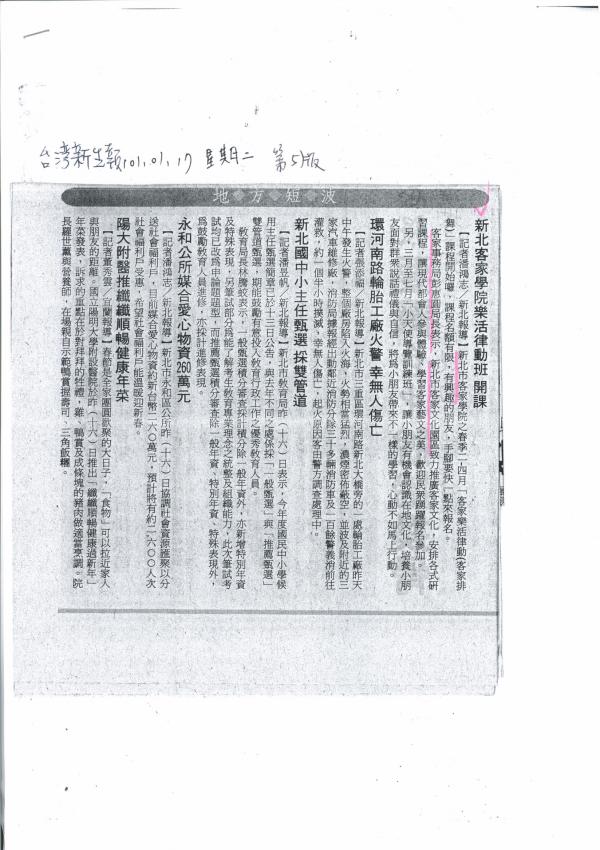 台灣新生報 101.01.17 星期二 第5版
地方短波
新北客家學院樂活律動班 開課
【記者潘鴻志/新北報導】新北市客家學院之春季二-四月「客家樂活律動(客家排
舞)」課程開始囉,課程名額有限,有興趣的朋友,手腳要快一點來報名。
客家事務局彭惠圓局長表示,新北市客家文化園區致力推廣客家文化,安排各式研
習課程,讓現代都會人參與體驗、學習客家藝文之美,歡迎民眾踴躍報名參加。
另,三月至七月「小天使導覽訓練班」,讓小朋友有機會認識在地文化,培養小朋
友面對群眾說話禮儀與自信,將為小朋友帶來不一樣的學習,心動不如馬上行動。
環河南路輪胎工廠火警 幸無人傷亡
【記者張添福/新北報導】新北市三重區環河南路新北大橋旁的一處輪胎工廠昨天
中午發生火警,整個廠房陷入火海,火勢相當猛烈,濃煙密佈蔽空,並波及附近的三
家汽車維修廠,消防局據報經出動鄰近消防分隊三十多輛消防車及一百餘警義消前往
灌救,約一個半小時撲滅,幸無人傷亡,起火原因客由警方調查處理中。
新北國中小主任甄選 採雙管道
【記者潘昱帆/新北報導】新北市教育局昨(十六)日表示,今年度國民中小學候
用主任甄選簡章已於十三日公告,與去年不同之處係採「一般甄選」與「推薦甄選」
雙管道甄選,期能鼓勵有意投入教育行政工作之優秀教育人員。
教育局長林騰蛟表示,一般甄選積分審查採計積分除一般年資外,亦新增特別年資
及特殊表現,另筆試部分為能了解考生教育專業理念之統整及組織能力,此次筆試考
試均已改爲申論題題型,而推薦甄選積分審查除一般年資、特別年資、特殊表現外,
為鼓勵教育人員進修,亦採計進修表現。
永和公所媒合愛心物資260萬元
【記者潘鴻志/新北報導】新北市永和區公所昨(十六)日協調社會資源匯聚以分
送社會福利戶,目前媒合愛心物資約新台幣二六〇萬元,預計將有約二六〇〇人次
社會福利戶受惠,希望社會福利戶能溫暖迎新春。
陽大附醫推纖纖順暢健康年菜
【記者董秀雲/宜蘭報導】春節是全家團圓歡聚的大日子,「食物」可以拉近家人
與朋友的距離。國立陽明大學附設醫院於昨(十六)日推出「纖纖順暢健康過新年」
年菜發表,訴求的重點在於對拜拜的牲禮,雞、鴨賞及成條塊的豬肉做適當烹調。院
長羅世薰與營養師,在場親自示範鴨賞握壽司、三角飯糰。